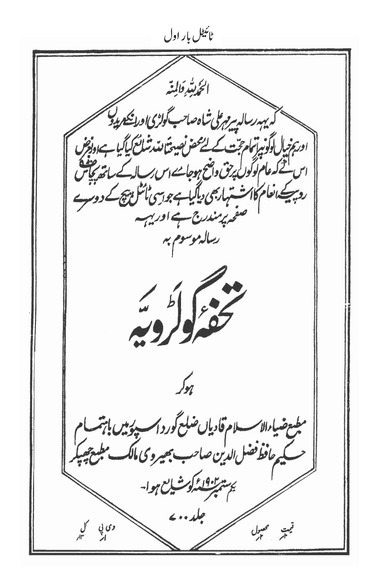 ٹائیٹل بار اول
الحمد للہ والمنّہ
کہ یہہ رسالہ پیر مہر علی شاہ صاحب گولڑی اور انکے مریدوں
اور ہم خیال لوگوں پر اتمام حجت کے لئے محض نصیحتًا للہ شائع کیا گیا ہے اور غرض
اس سے کہ عام لوگوں پر حق واضح ہو جائے اس رسالہ کے ساتھ پچاس
روپیہ کے انعام کا اشتہار بھی دیا گیا ہے جو اسی ٹائٹل پیج کے دوسرے
صفحہ پر مندرج ہے اور یہہ
رسالہ موسوم بہ
تحفۂ گولڑویّہ
ہوکر
مطبع ضیاء الاسلام قادیاں ضلع گورداسپور میں باہتمام
حکیم حافظ فضل الدین صاحب بھیروی مالک مطبع چھپکر
یکم ستمبر ۱۹۰۲ء کو شایع ہوا۔
جلد ۷۰۰
قیمت محصول وی پی کل